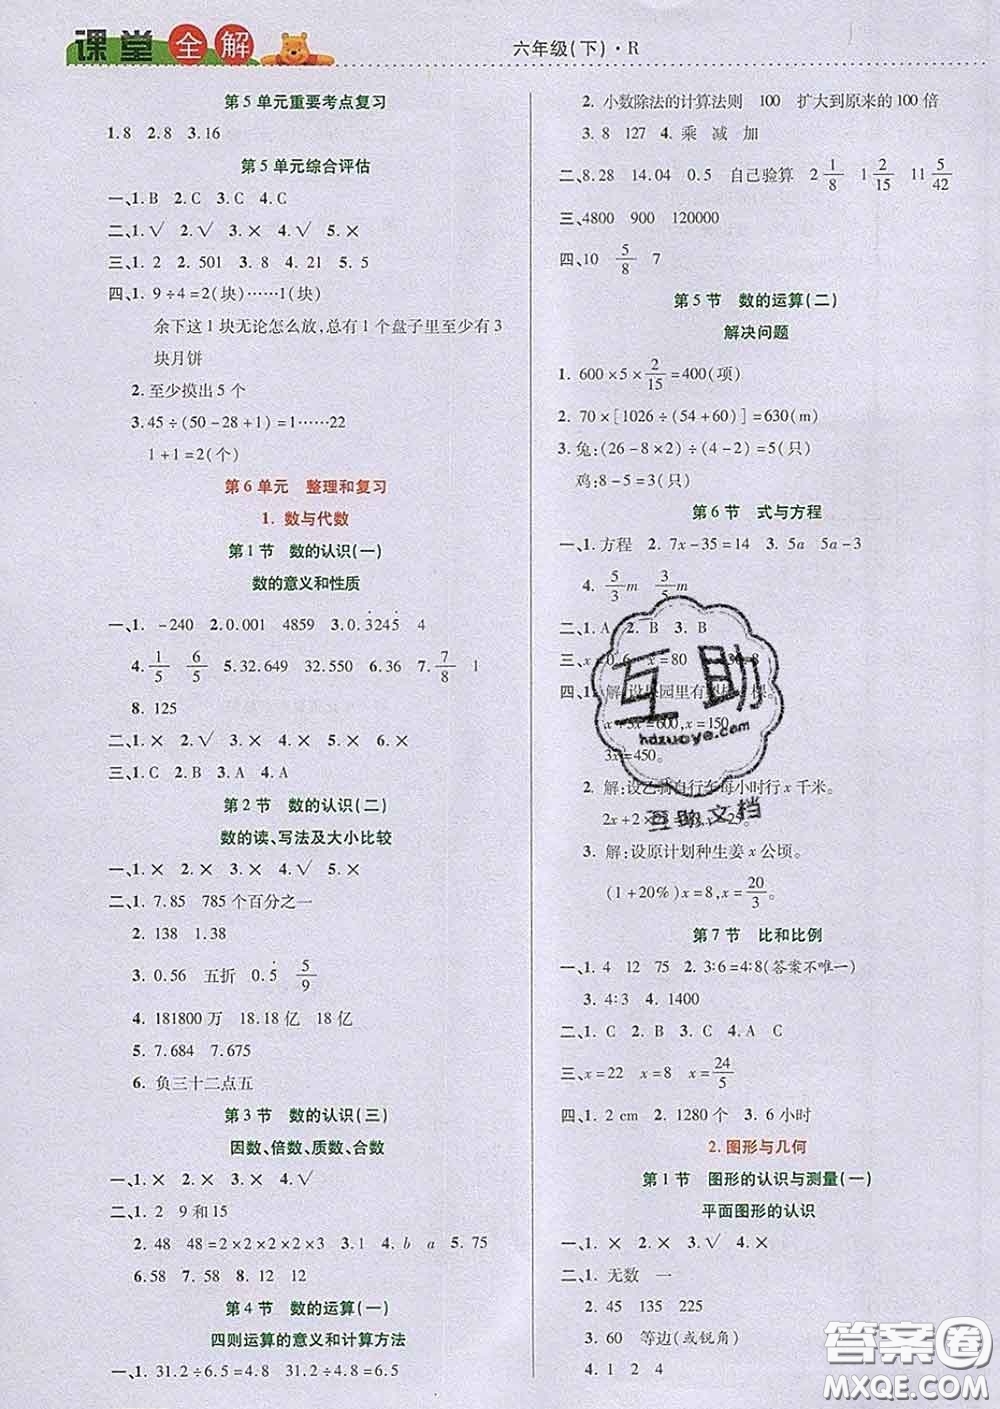 课堂全解
六年级(下)·R
第5单元重要考点复习
1.8 2.8 3.16
第5单元综合评估
一、1. B 2. C 3. C 4. C
二、1. √ 2. √ 3. × 4. √ 5. ×
三、1. 2 2. 501 3. 8 4. 21 5. 5
四、1. 9÷4=2(块)……1(块)
余下这1块无论怎么放,总有1个盘子里至少有3
块月饼
2. 至少摸出5个
3. 45÷(50-28+1)=1……22
1+1=2(个)
第6单元 整理和复习
1. 数与代数
第1节 数的认识(一)
数的意义和性质
一、1. -240 2. 0.001 4859 3. 0.3̇245̇ 4
4. 1/5 6/5 5. 32.649 32.550 6. 36 7. 7/8 1
8. 125
二、1. × 2. √ 3. × 4. ×
三、1. C 2. B 3. A 4. A
第2节 数的认识(二)
数的读、写法及大小比较
一、1. × 2. × 3. × 4. √ 5. ×
二、1. 7.85 785个百分之一
2. 138 1.38
3. 0.56 五折 0.5̇ 5/9
4. 181800万 18.18亿 18亿
5. 7.684 7.675
6. 负三十二点五
第3节 数的认识(三)
因数、倍数、质数、合数
一、1. × 2. × 3. × 4. × 5. ×
二、1. 2 9和15
2. 48 48=2×2×2×2×3 3. 1 4. b a 5. 75
6. 58 7. 58 8. 12 12
第4节 数的运算(一)
四则运算的意义和计算方法
一、1. 31.2÷6.5=4.8 31.2÷4.8=6.5
2. 小数除法的计算法则 100 扩大到原来的100倍
3. 8 127 4. 乘 减 加
二、8.28 14.04 0.5 自己验算 2 1/8 1 2/15 11 5/42
三、4800 900 120000
四、10 5/8 7
第5节 数的运算(二)
解决问题
1. 600×5×2/15=400(项)
2. 70×[1026÷(54+60)]=630(m)
3. 兔:(26-8×2)÷(4-2)=5(只)
鸡:8-5=3(只)
第6节 式与方程
一、1. 方程 2. 7x-35=14 3. 5a 5a-3
4. 5/3 m 3/5 m
二、1. A 2. B 3. B
三、x=0.6 x=80
四、1. 解:设果园里有 棵。
x+3x=600,x=150,
3x=450。
2. 解:设乙骑自行车每小时行x千米。
2x+2×
3. 解:设原计划种生姜x公顷。
(1+20%)x=8,x=20/3。
第7节 比和比例
一、1. 4 12 75 2. 3∶6=4∶8(答案不唯一)
3. 4∶3 4. 1400
二、1. C 2. B 3. A 4. C
三、x=22 x=8 x=24/5
四、1. 2 cm 2. 1280个 3. 6小时
2. 图形与几何
第1节 图形的认识与测量(一)
平面图形的认识
一、1. × 2. × 3. √ 4. ×
二、1. 无数 一
2. 45 135 225
3. 60 等边(或锐角)
4. 1 4
互助
hdzuoye.com
互助文档
答案圈
MXQE.COM